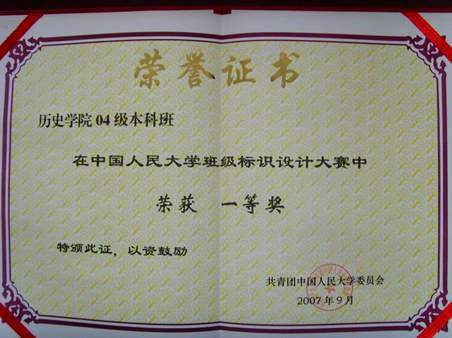 荣誉证书
历史学院 04 级本科班
在中国人民大学班级标识设计大赛中
荣获 一等奖
特颁此证，以资鼓励
共青团中国人民大学委员会
2007 年 9 月